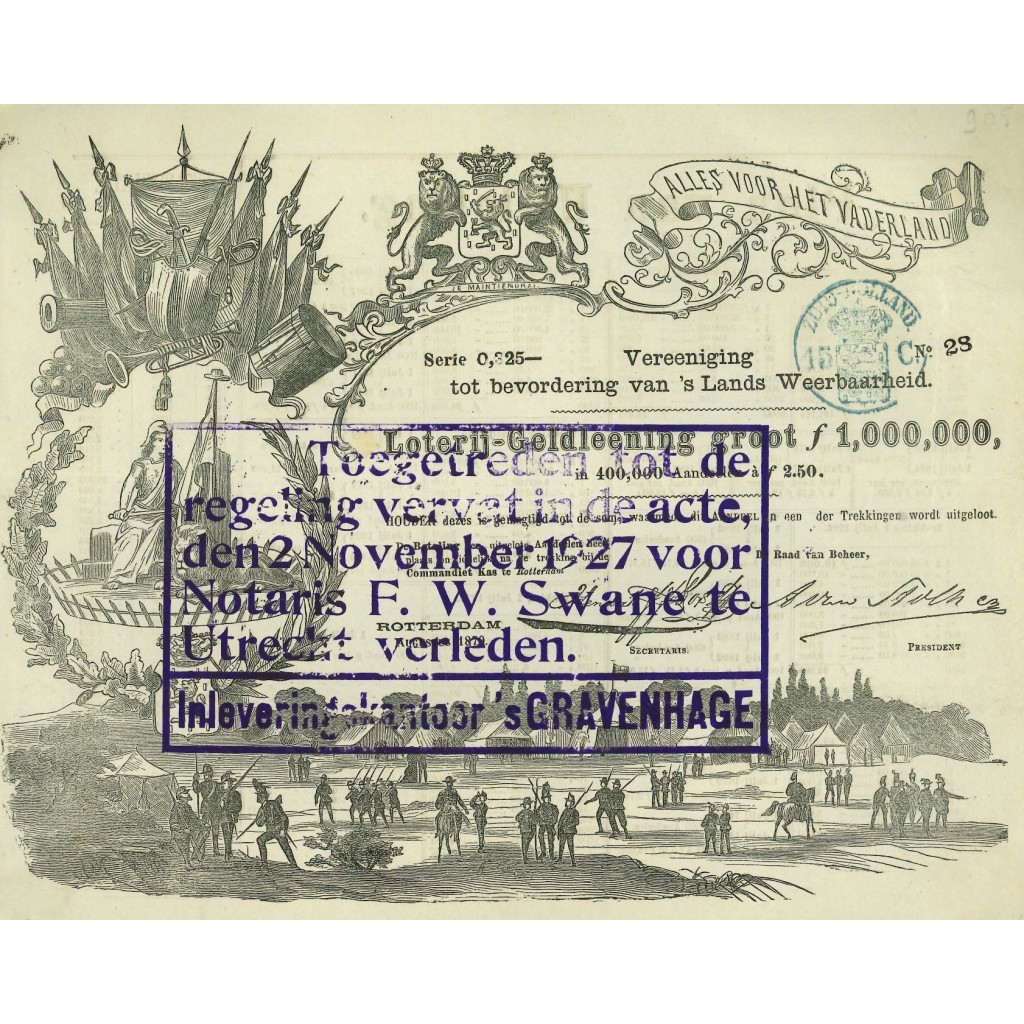 ALLES VOOR HET VADERLAND
JE MAINTIENDRAI
ZUID-HOLLAND
15 C
Serie 0,325— Vereeniging No 28
tot bevordering van 's Lands Weerbaarheid.
Loterij-Geldleening groot f 1,000,000,
in 400,000 Aandeelen à f 2.50.
HOUDER dezes is gemagtigd tot de som, waarmede dit AANDEEL in een der Trekkingen wordt uitgeloot.
De Betaling der uitgelote Aandeelen heeft
plaats onmiddelijk na de trekking bij de
Commandiet Kas te Rotterdam
De Raad van Beheer,
ROTTERDAM
Augustus
SECRETARIS.
PRESIDENT
Toegetreden tot de
regeling vervat in de acte,
den 2 November 1927 voor
Notaris F. W. Swane te
Utrecht verleden.
Inleveringskantoor 's GRAVENHAGE